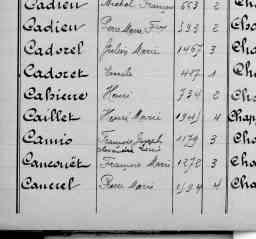 Cadieu Michel François 663 2 Cha
Cadieu Pierre Marie Fois 333 2 Cha
Cadorel Julien Marie 1467 3 Cha
Cadoret Emile 417 1 Cha
Cahierre Henri 734 2 Cha
Caillet Henri Marie 1945 4 Chap
Camio François Joseph 1179 3 Cha
Alexandre René
Cancouët François Marie 1272 3 Cha
Cancrel Pierre Marie 4 Cha